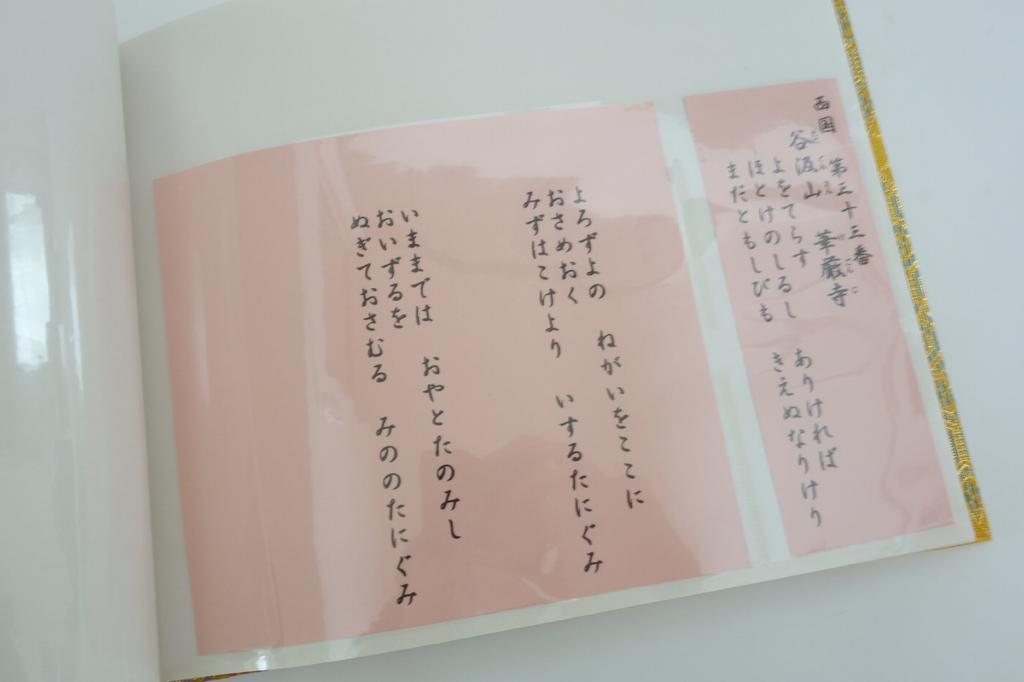 西国 第三十三番
谷汲山 華厳寺
たにぐみ けごんじ
よをてらす ありければ
ほとけのしるし
まだともしびも きえぬなりけり
よろずよの ねがいをここに
おさめおく
みずはこけより いするたにぐみ
いままでは おやとたのみし
おいずるを
ぬぎておさむる みののたにぐみ